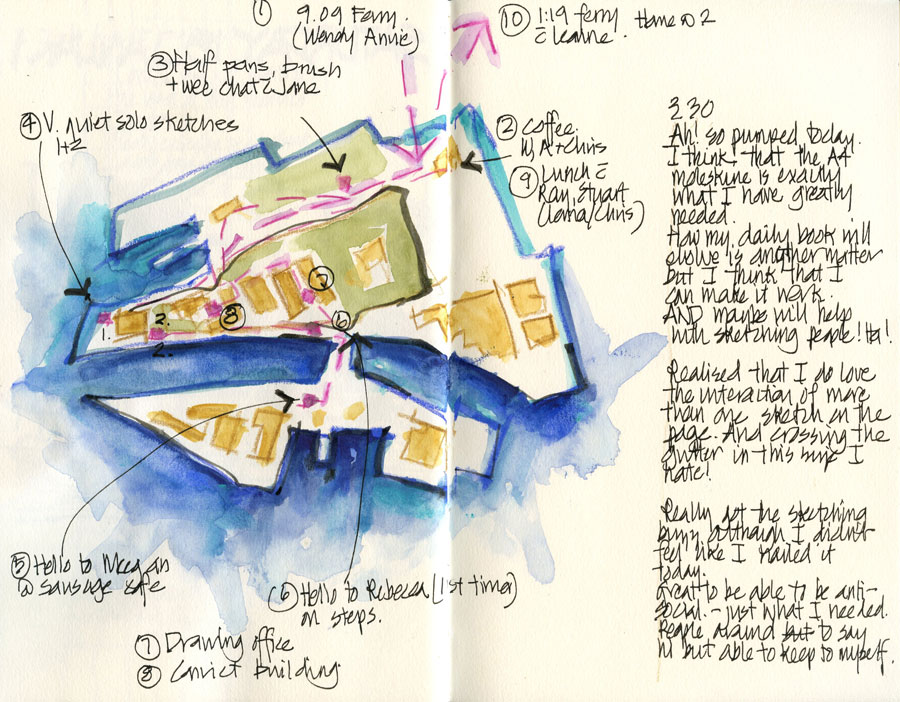 ① 9.09 Ferry.
(Wendy Annie)
③ Half pans, brush
+ wee chat c̄ Jane
④ V. quiet solo sketches
1+2
⑩ 1:19 ferry
c̄ Leanne. Home @ 2
② Coffee
w A + Chris
⑨ Lunch c̄
Ray, Stuart
(Lorna/Chris)
1.
2.
2.
⑧
⑦
⑥
⑤ Hello to Meegan
@ sausage safe
⑥ Hello to Rebecca (1st time)
on steps.
⑦ Drawing office
⑧ Convict building
3 30
Ah! so pumped today.
I think that the A4
moleskine is exactly
what I have greatly
needed.
How my daily book will
evolve is another matter
but I think that I
can make it work.
AND maybe will help
with sketching people! Ha!
Realised that I do love
the interaction of more
than one sketch on the
page. And crossing the
gutter in this book I
hate!
Really got the sketching
buzz although I didn't
feel like I nailed it
today.
Great to be able to be anti-
social - just what I needed.
People around but to say
hi but able to keep to myself.